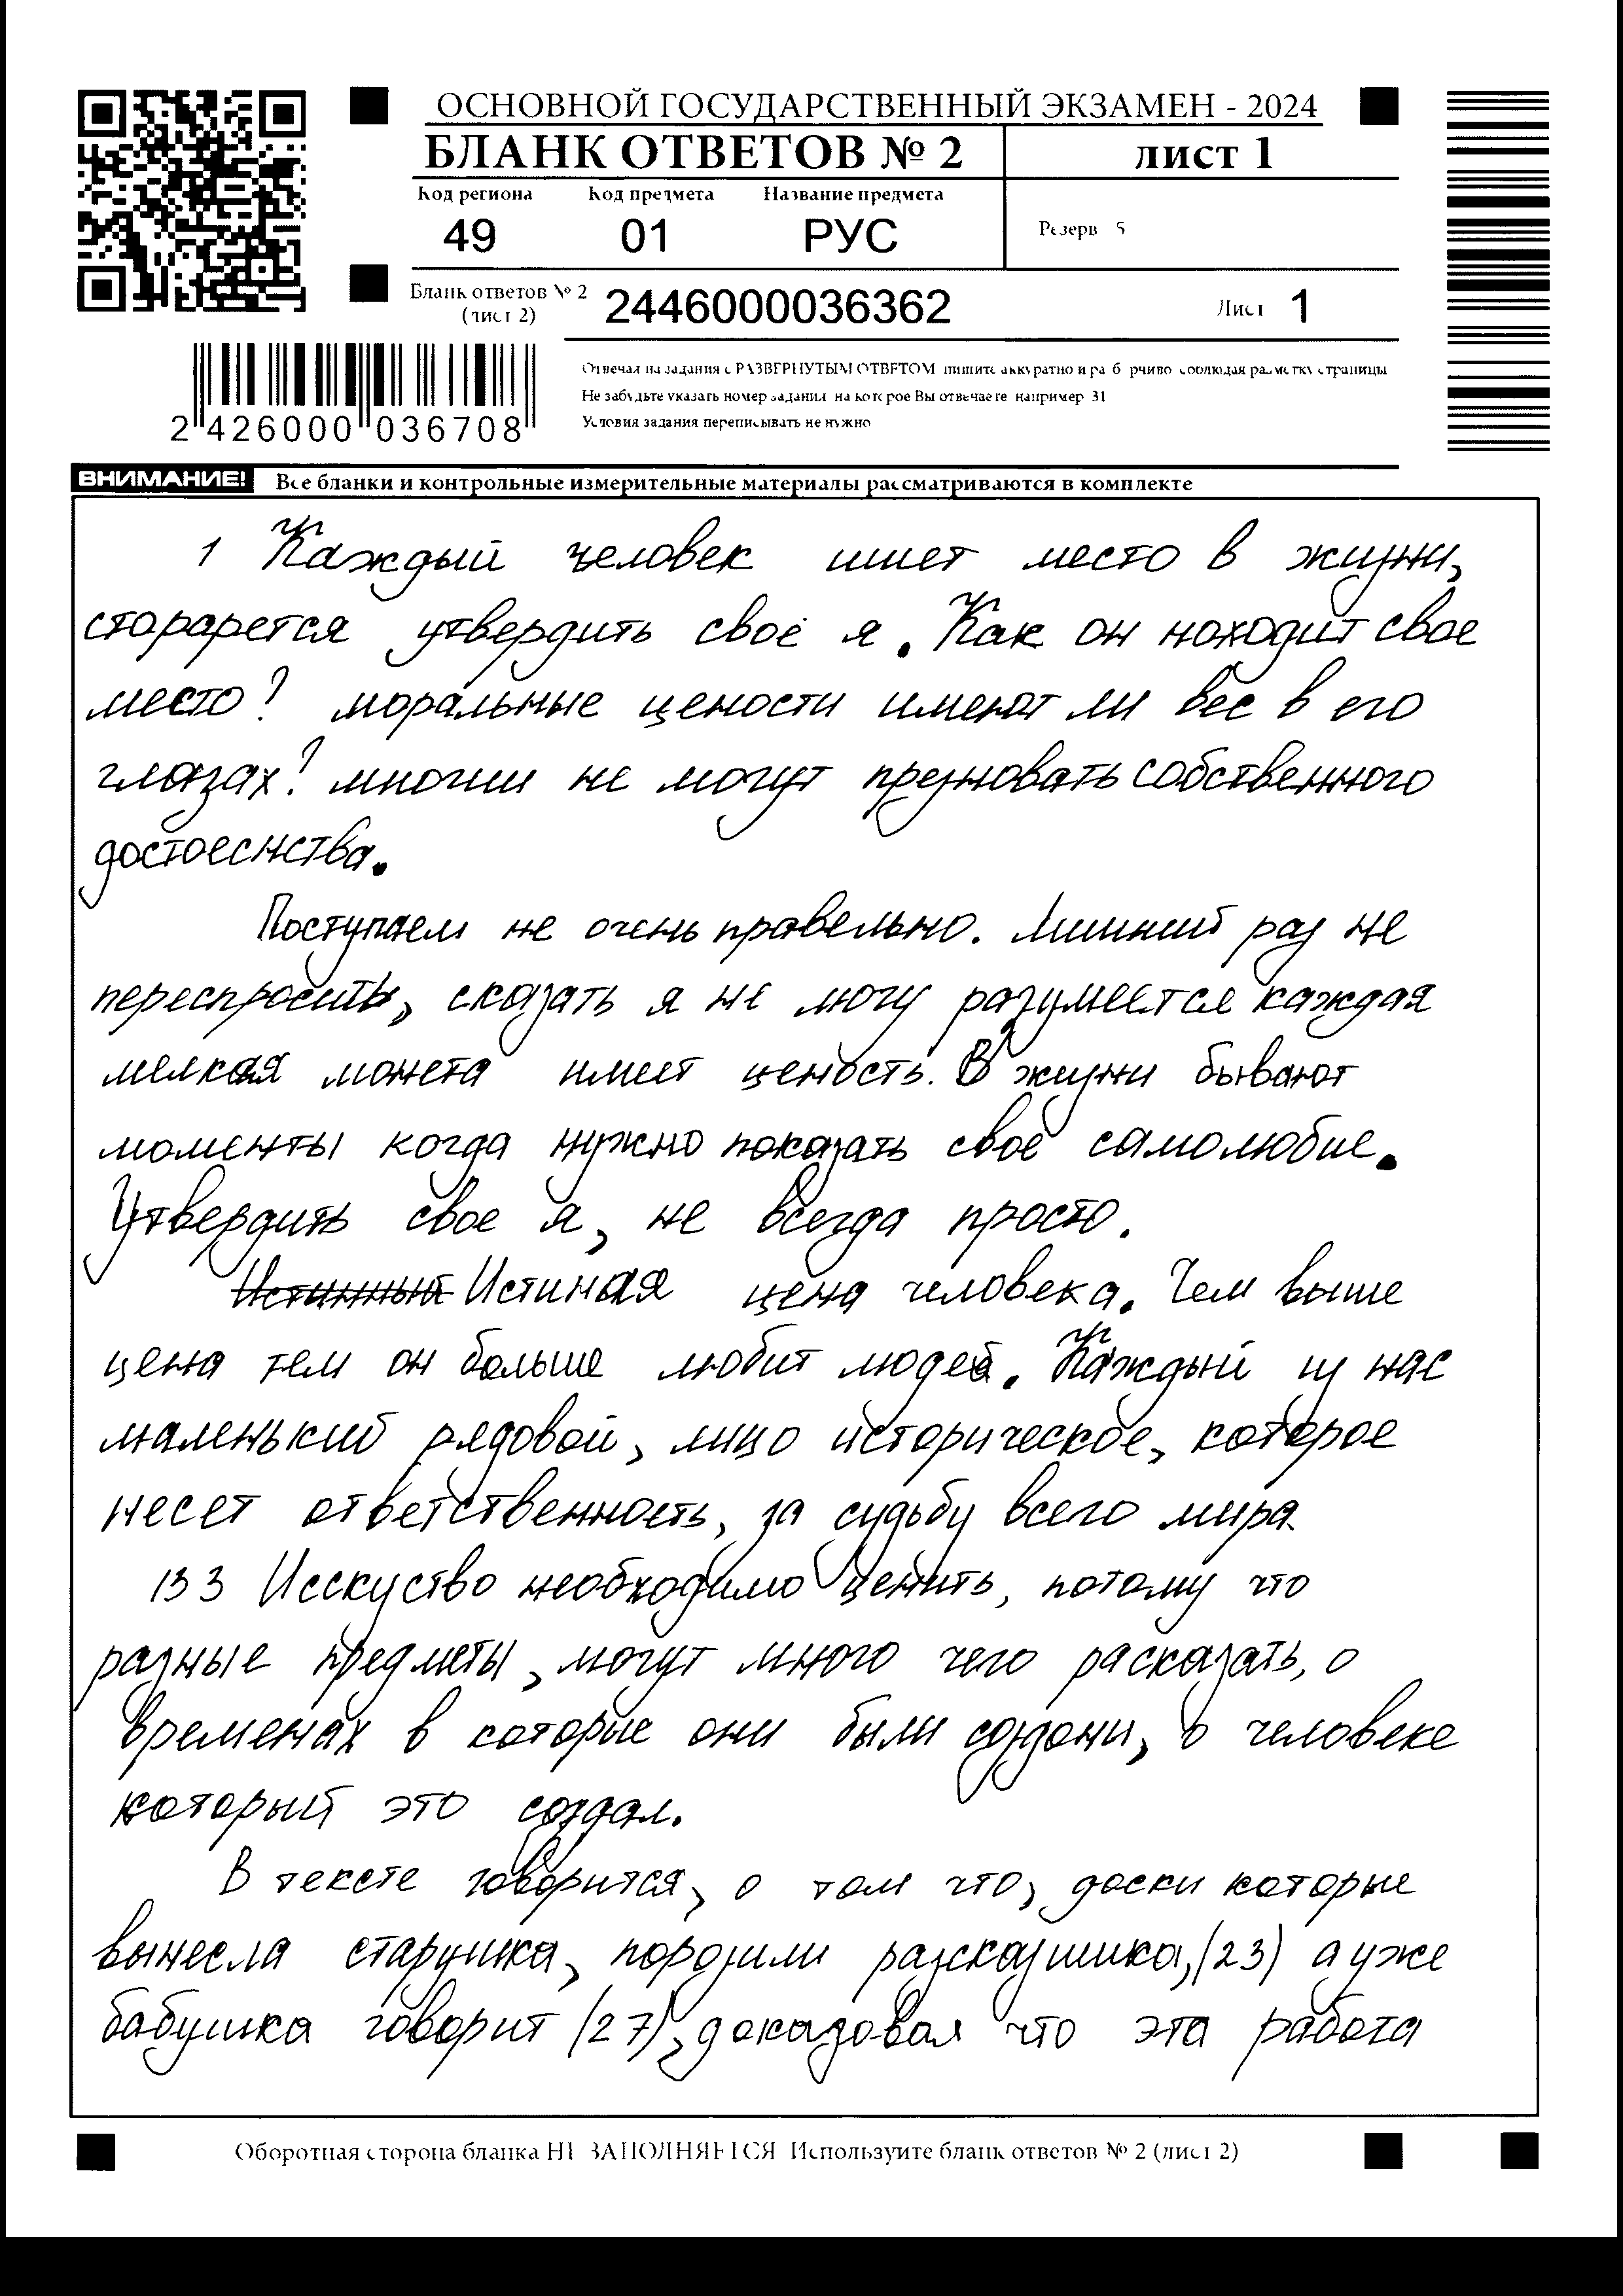 ОСНОВНОЙ ГОСУДАРСТВЕННЫЙ ЭКЗАМЕН - 2024
БЛАНК ОТВЕТОВ № 2 ЛИСТ 1
Код региона Код предмета Название предмета
49 01 РУС Резерв 5
Бланк ответов № 2 (лист 2) 2446000036362 Лист 1
2 426000 036708
Отвечая на задания с РАЗВЕРНУТЫМ ОТВЕТОМ пишите аккуратно и разборчиво соблюдая разметку страницы
Не забудьте указать номер задания на которое Вы отвечаете например 31
Условия задания переписывать не нужно
ВНИМАНИЕ! Все бланки и контрольные измерительные материалы рассматриваются в комплекте
1 Каждый человек ишет место в жизни,
сторарется утвердить своё я. Как он ноходит свое
место? моральные цености имеют ли вес в его
глазах? многии не могут презновать собственного
достоеснства.
Поступаем не очень правельно. Лишний раз не
переспросить, сказать я не могу разумеется каждая
мелкая монета имеет ценость. В жизни бывают
моменты когда нужно показать своё самолюбие.
Утвердить свое я, не всегда просто.
Истинный Истиная цена человека. Чем выше
цена тем он больше любит людей. Каждый из нас
маленький рядовой, лицо историческое, которое
несет ответственность, за судьбу всего мира.
13 3 Исскуство необходимо ценить, потому что
разные предметы, могут много чего расказать, о
временах в которые они были создони, о человеке
который это создал.
В тексте говорится, о том что, доски которые
вынесла старушка, порозили разсказшика, (23) а уже
бабушка говорит (27), доказовая что эта работа
Оборотная сторона бланка НЕ ЗАПОЛНЯЕТСЯ Используйте бланк ответов № 2 (лист 2)